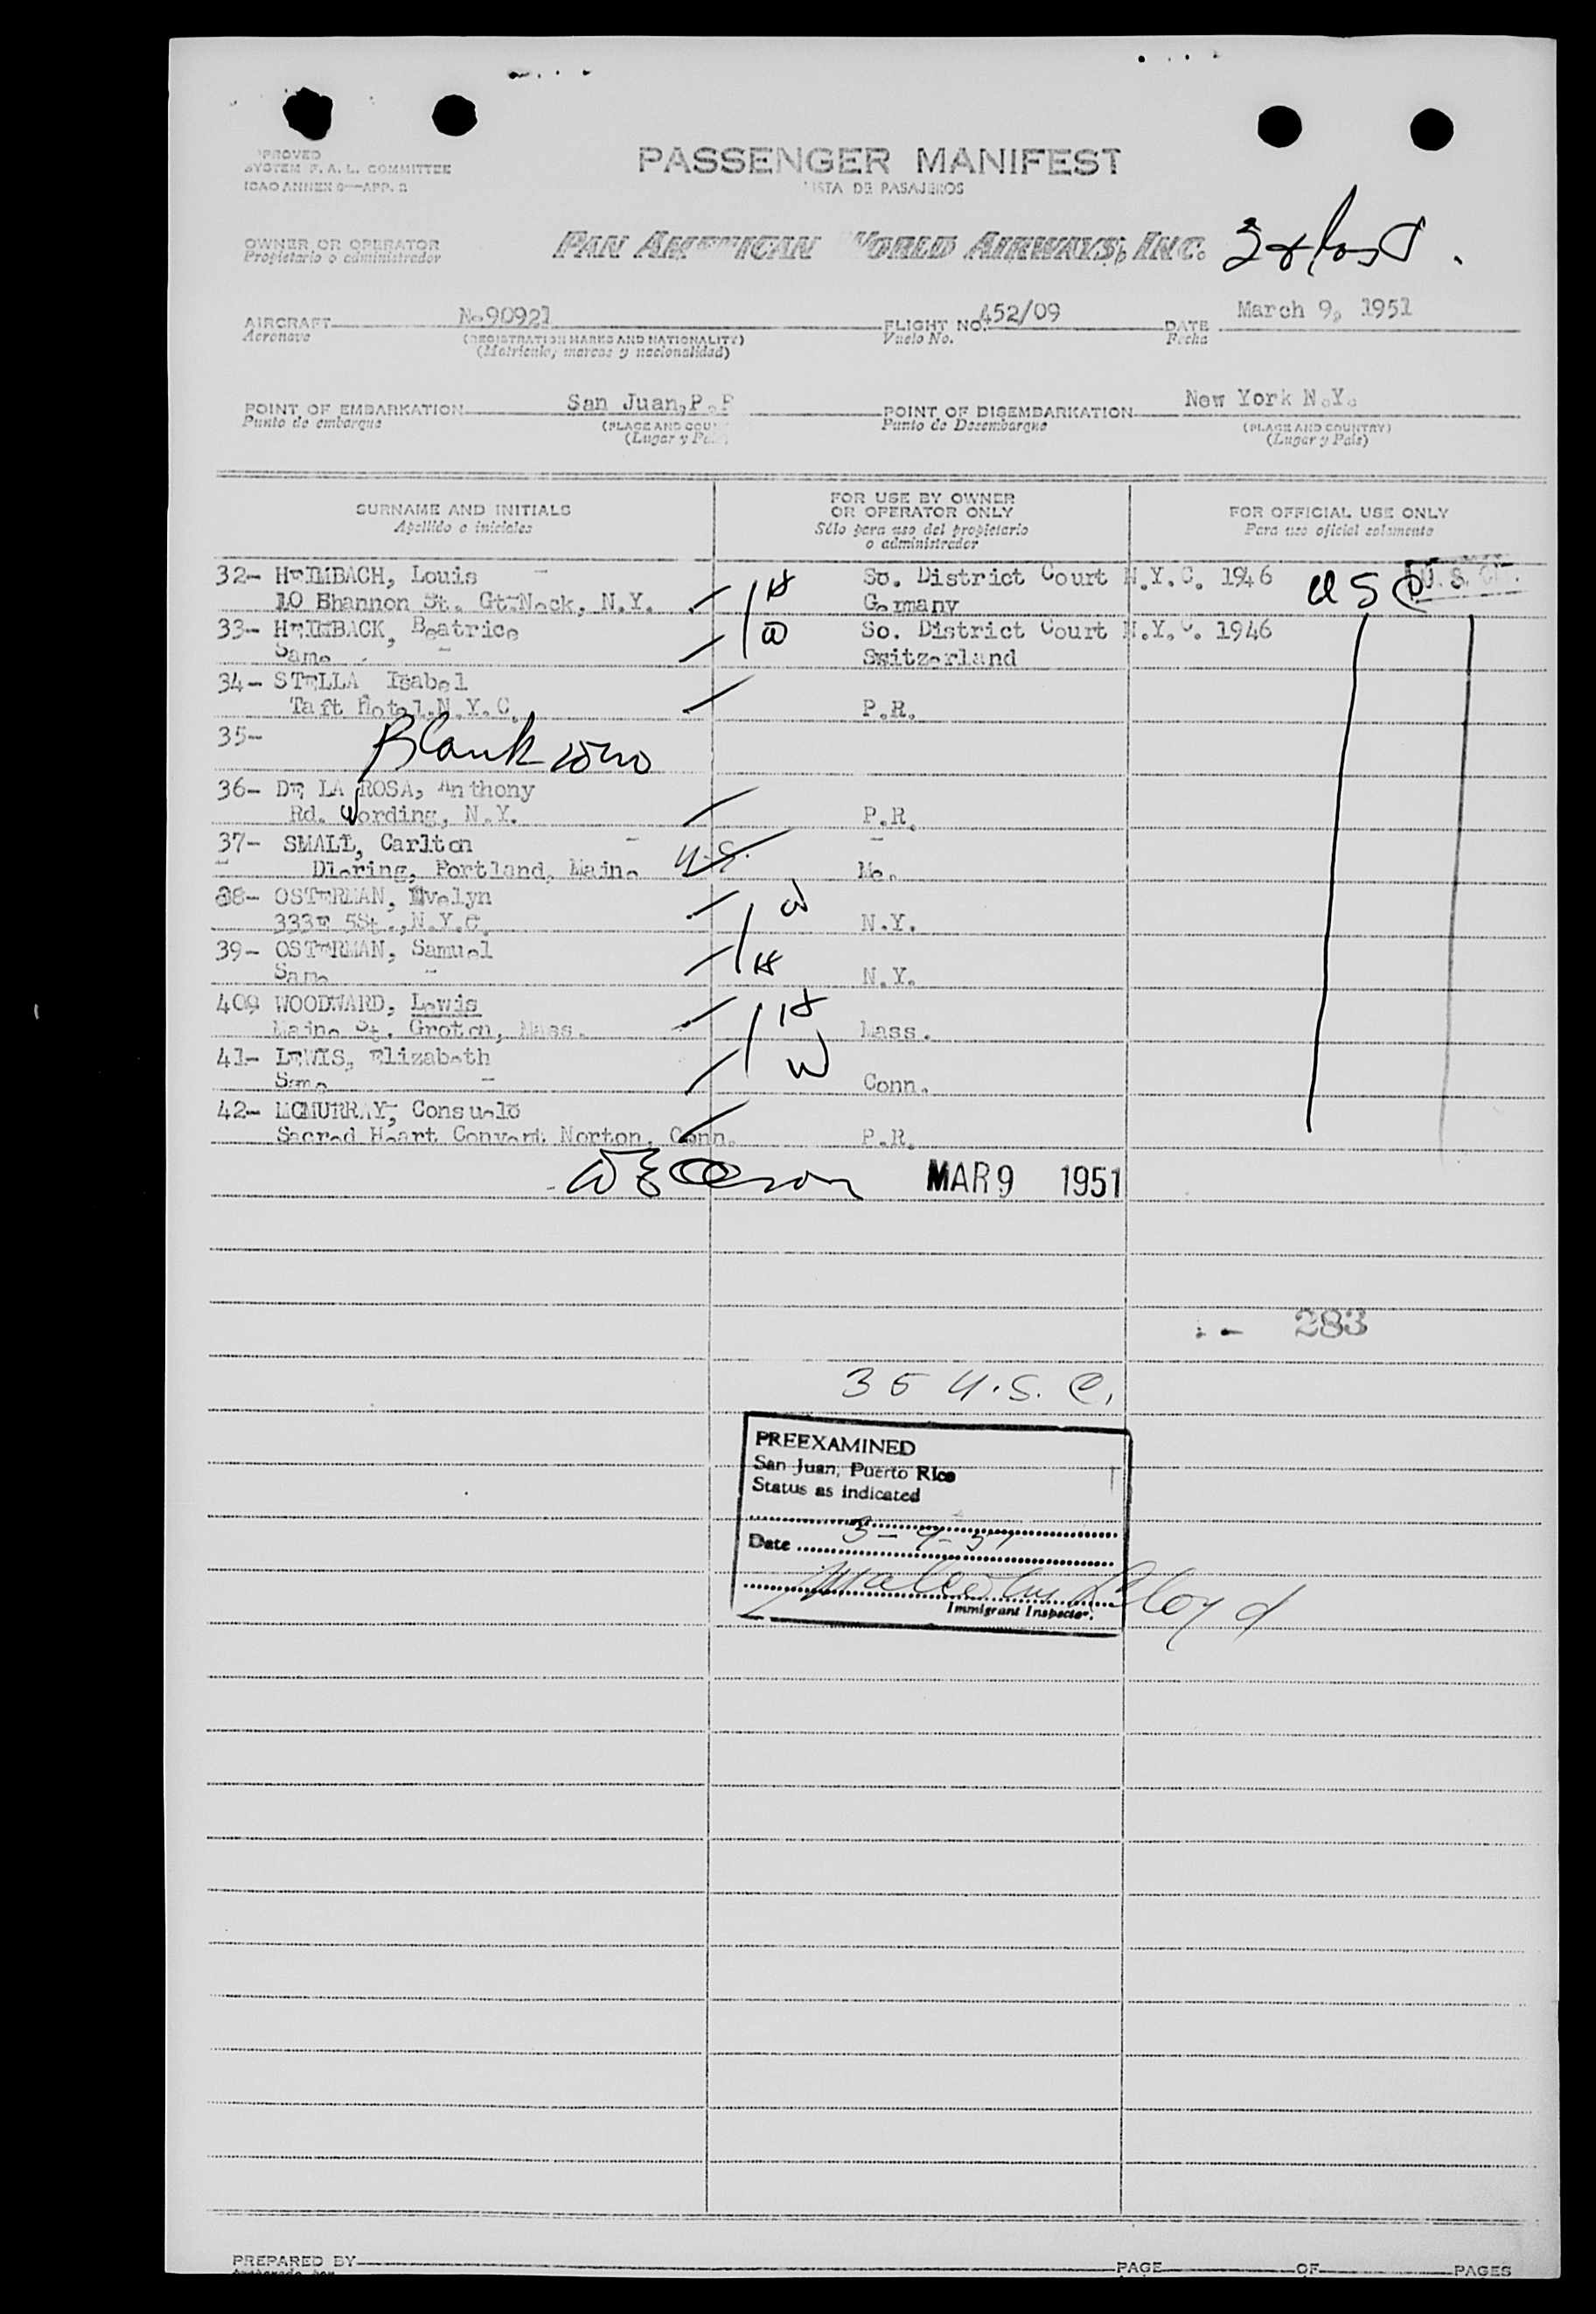 PROVED
SYSTEM F. A. L. COMMITTEE
ICAO ANNEX 9—APP. 2
PASSENGER MANIFEST
LISTA DE PASAJEROS
OWNER OR OPERATOR
Propietario o administrador
PAN AMERICAN WORLD AIRWAYS, INC.
3 & last.
AIRCRAFT N-90921 FLIGHT NO. 452/09 DATE March 9, 1951
Aeronave (REGISTRATION MARKS AND NATIONALITY) Vuelo No. Fecha
(Matricula, marcas y nacionalidad)
POINT OF EMBARKATION San Juan,P.R POINT OF DISEMBARKATION New York N.Y.
Punto de embarque (PLACE AND COU Punto de Desembarque (PLACE AND COUNTRY)
(Lugar y Pa (Lugar y Pais)
SURNAME AND INITIALS
Apellido e iniciales
FOR USE BY OWNER
OR OPERATOR ONLY
Sólo para uso del propietario
o administrador
FOR OFFICIAL USE ONLY
Para uso oficial solamente
32- HEIMBACH, Louis H So. District Court N.Y.C. 1946 U S C U. S. C.
10 Bhannon St. Gt.Neck, N.Y. Germany
33- HEIMBACK, Beatrice W So. District Court N.Y.C. 1946
Same Switzerland
34- STELLA Isabel
Taft Hotel.N.Y.C. P.R.
35- Blank
36- DE LA ROSA, Anthony
Rd. Wording, N.Y. P.R.
37- SMALL, Carlton
Diering, Portland, Maine U.S. Me.
38- OSTERMAN, Evelyn W
333E 5St.,N.Y.C. N.Y.
39- OSTERMAN, Samuel
Same H N.Y.
409 WOODWARD, Lewis H
Maine St. Groton, Mass. Mass.
41- LEWIS, Elizabeth W
Same Conn.
42- MCMURRAY, Consuelo
Sacred Heart Convent Norton, Conn. P.R.
MAR 9 1951
283
35 U.S.C.
PREEXAMINED
San Juan, Puerto Rico
Status as indicated
Date 3-9-51
Malcolm Lloyd
Immigrant Inspector.
PREPARED BY PAGE OF PAGES